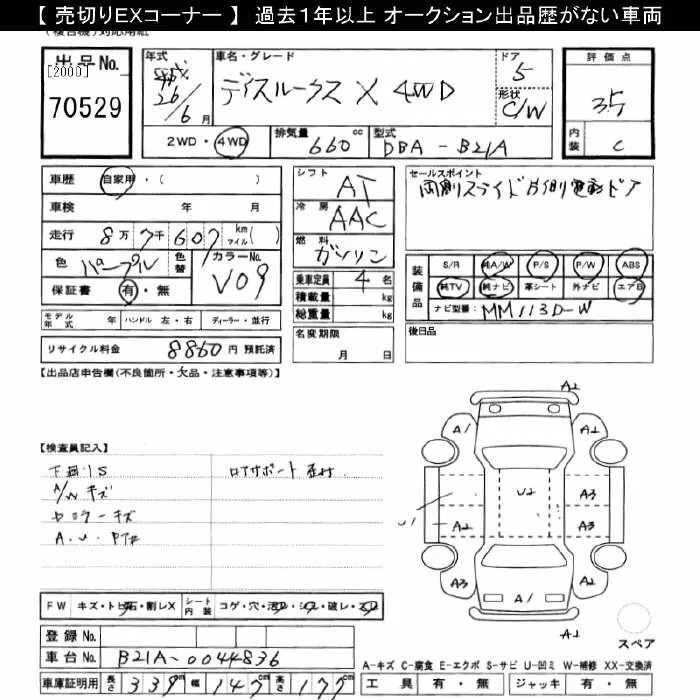 【 売切りEXコーナー 】 過去1年以上 オークション出品歴がない車両
(複合機)対応用紙
出品No.
[2000]
70529
年式
平成
26/6月
車名・グレード
ディズルークス X 4WD
ドア
5
形状
C/W
評価点
3.5
内装
C
2WD・4WD
排気量
660 cc
型式
DBA-B21A
車歴
自家用・( )
車検 年 月
走行 8万7千607 km マイル( )
色 パープル
色替
カラーNo.
V09
保証書 有・無
モデル年式 年
ハンドル 左・右
ディーラー・並行
リサイクル料金 8860 円 預託済
シフト
AT
冷房
AAC
燃料
ガソリン
乗車定員 4 名
積載量 kg
総重量 kg
名変期限
月 日
セールスポイント
両側スライド片側電動ドア
装備品
S/R 純A/W P/S P/W ABS
純TV 純ナビ 革シート 外ナビ エアB
ナビ型番: MM113D-W
後日品
【出品店申告欄(不良箇所・欠品・注意事項等)】
【検査員記入】
下廻りS
A/Wキズ
ミラーキズ
A.U.P
ロアサポート
A2
A1
A2
U2
A3
U1
A2
A3
A3
A2
A1
A2
スペア
FW キズ・トビ石・割レX
シート内装 コゲ・穴・・破レ・
登録No.
車台No. B21A-0044836
車庫証明用 長さ 339 cm 幅 147 cm 高さ 177 cm
A-キズ C-腐食 E-エクボ S-サビ U-凹ミ W-補修 XX-交換済
工具 有・無 ジャッキ 有・無